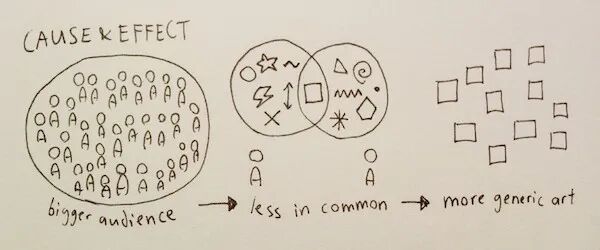 CAUSE & EFFECT
bigger audience → less in common → more generic art